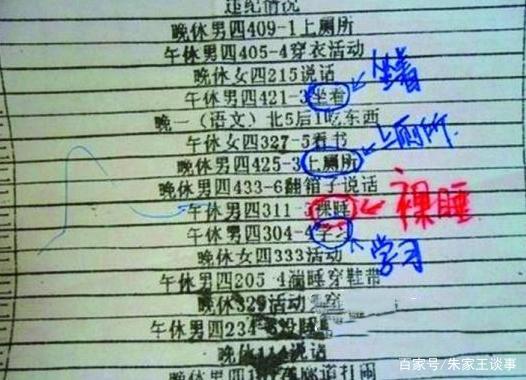 违纪情况
晚休男四409-1上厕所
午休男四405-4穿衣活动
晚休女四215说话
午休男四421-3坐着 坐着
晚一（语文）北5后1吃东西
午休女四327-5看书
晚休男四425-3上厕所 上厕所
晚休男四433-6翻箱子说话
午休男四311-3裸睡 裸睡
午休男四304-4学习 学习
晚休女四333活动
午休男四205-4 睡穿鞋带
晚休329活动
午休男四234
晚休 说话
百家号/朱家王谈事